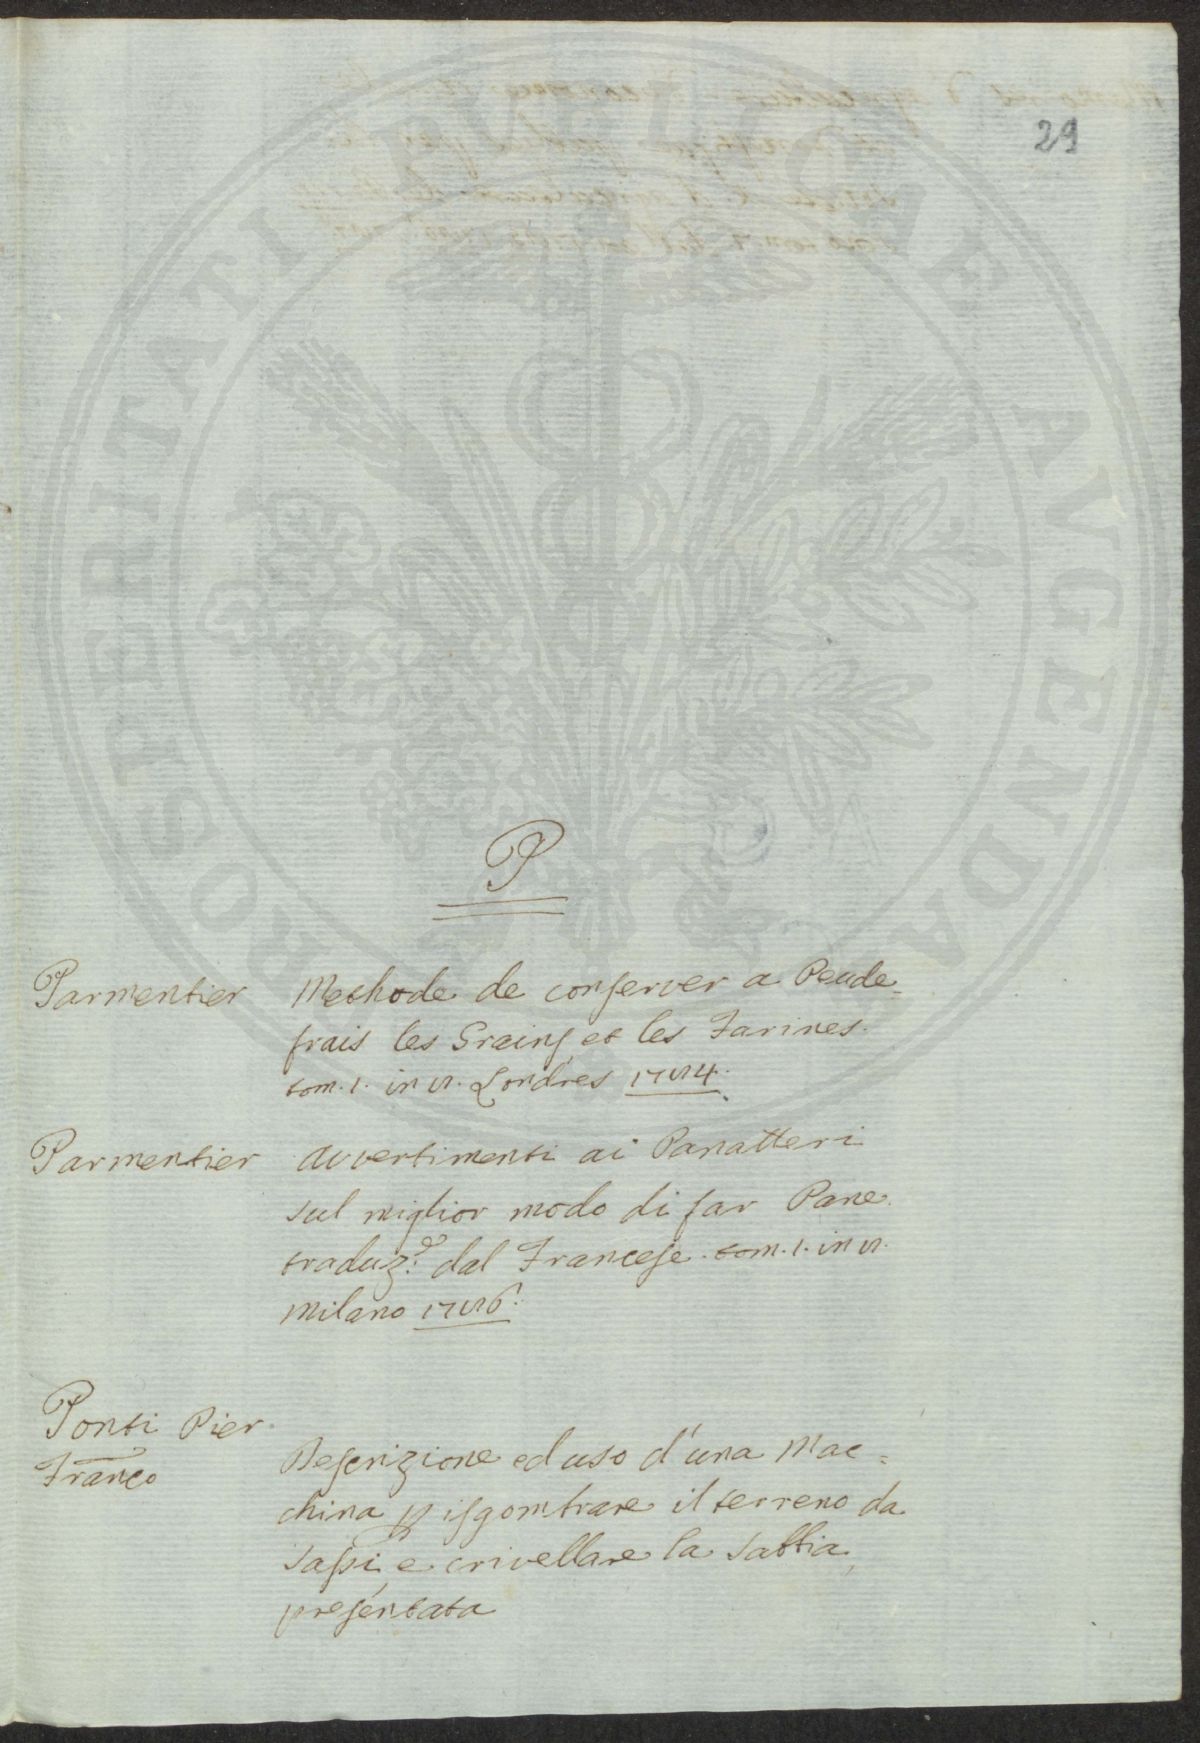 29
PROSPERITATI PUBLICAE AVGENDAE
P
Parmentier Methode de conserver a Peude=
frais les Grains et les Farines.
tom. 1. in 12. Londres 1784.
Parmentier Avvertimenti ai Panatteri
sul miglior modo di far Pane
traduz.e dal Francese. tom. 1. in 12.
Milano 1786.
Ponti Pier
Franco
Descrizione ed uso d'una Mac=
china p isgombrare il terreno da
sassi, e crivellare la sabbia,
presentata